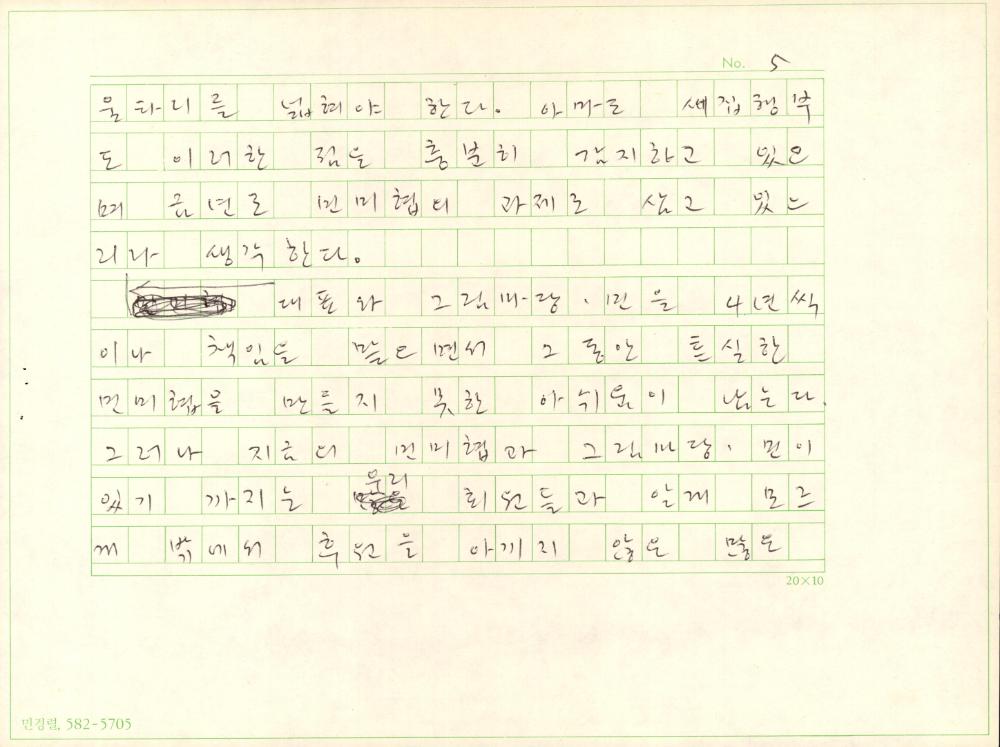 No. 5
울타리를 넓혀야 한다. 아마도 새집행부
도 이러한 점을 충분히 감지하고 있으
며 금년도 민미협의 과제로 삼고 있는
리라 생각한다.
대표와 그림마당·민을 4년씩
이나 책임을 맡으면서 그 동안 튼실한
민미협을 만들지 못한 아쉬움이 남는다.
그러나 지금의 민미협과 그림마당·민이
있기 까지는 우리 회원들과 알게 모르
게 밖에서 후원을 아끼지 않은 많은
20×10
민경렬, 582-5705